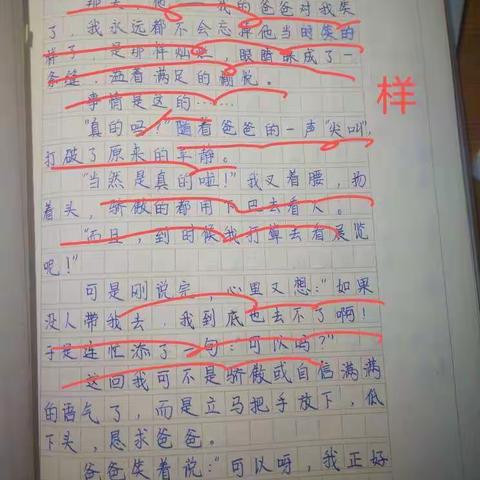 我的爸爸对我笑
了，我永远都不会忘掉他当时笑的
样子，是那样灿，眼睛眯成了一
条缝，洒着满足的愉悦。
事情是这的……
样
"真的吗？"随着爸爸的一声"尖叫"，
打破了原来的平静。
"当然是真的啦！"我叉着腰，扬
着头，骄傲的都用下巴去看人。
"而且，到时候我打算去看展览
呢！"
可是刚说完，心里又想："如果
没人带我去，我到底也去不了啊！
于是连忙添了一句："可以吗？"
这回我可不是骄傲或自信满满
的语气了，而是立马把手放下，低
下头，恳求爸爸。
爸爸笑着说："可以呀，我正好